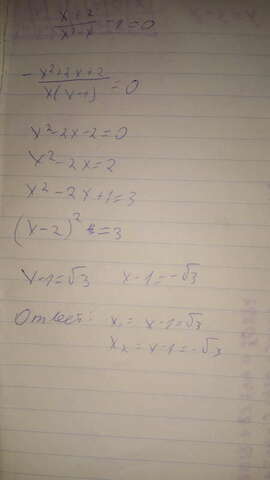 x+2/x²-x -1=0
-x²+2x+2/x(x-1)=0
x²-2x-2=0
x²-2x=2
x²-2x+1=3
(x-2)²=3
x-1=√3 x-1=-√3
Ответ: x₁=x-1=√3
x₂=x-1=-√3